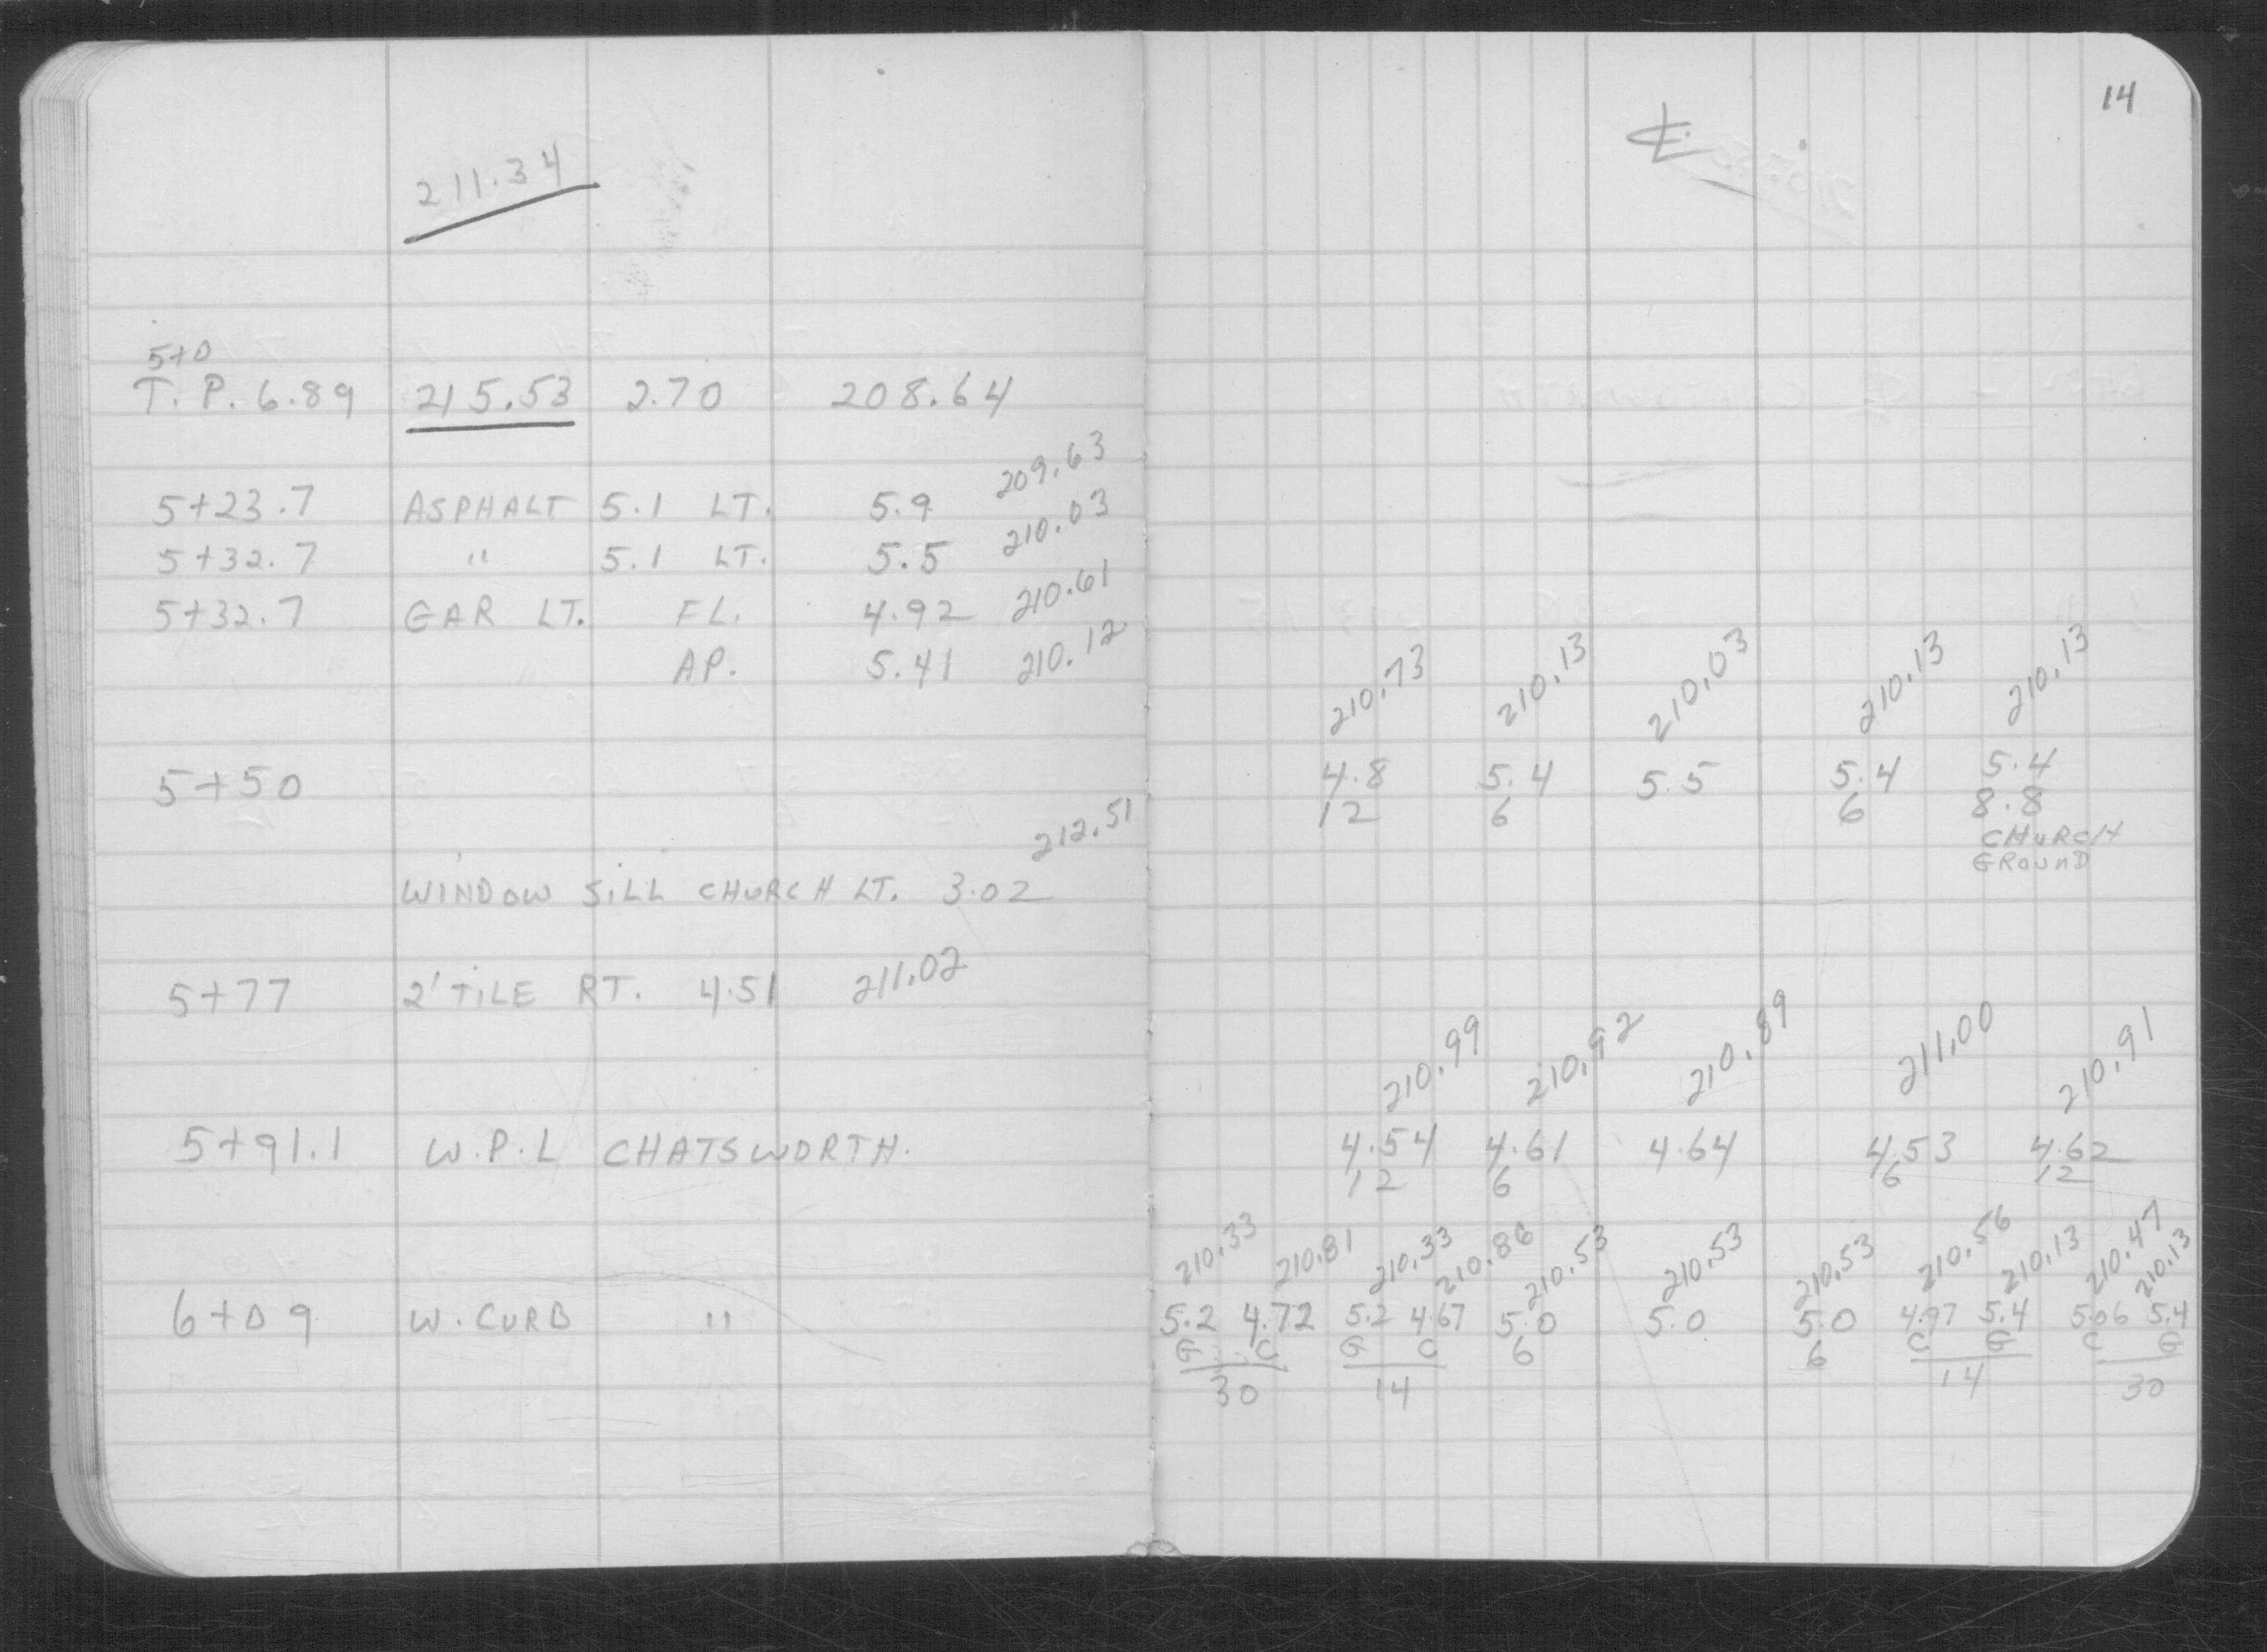 14
211.34
℄
5+0
T.P. 6.89 215.53 2.70 208.64
209.63
5+23.7 ASPHALT 5.1 LT. 5.9
210.03
5+32.7 " 5.1 LT. 5.5
5+32.7 GAR LT. FL. 4.92 210.61
AP. 5.41 210.12
210.73 210.13 210.03 210.13 210.13
5+50 4.8 5.4 5.5 5.4 5.4
12 6 6 8.8
CHURCH
GROUND
212.51
WINDOW SILL CHURCH LT. 3.02
5+77 2' TILE RT. 4.51 211.02
210.99 210.92 210.89 211.00 210.91
5+91.1 W.P.L CHATSWORTH. 4.54 4.61 4.64 4.53 4.62
12 6 6 12
210.33 210.81 210.33 210.86 210.53 210.53 210.53 210.56 210.13 210.47 210.13
6+09 W. CURB " 5.2 4.72 5.2 4.67 5.0 5.0 5.0 4.97 5.4 5.06 5.4
G C G C 6 6 C G C G
30 14 14 30